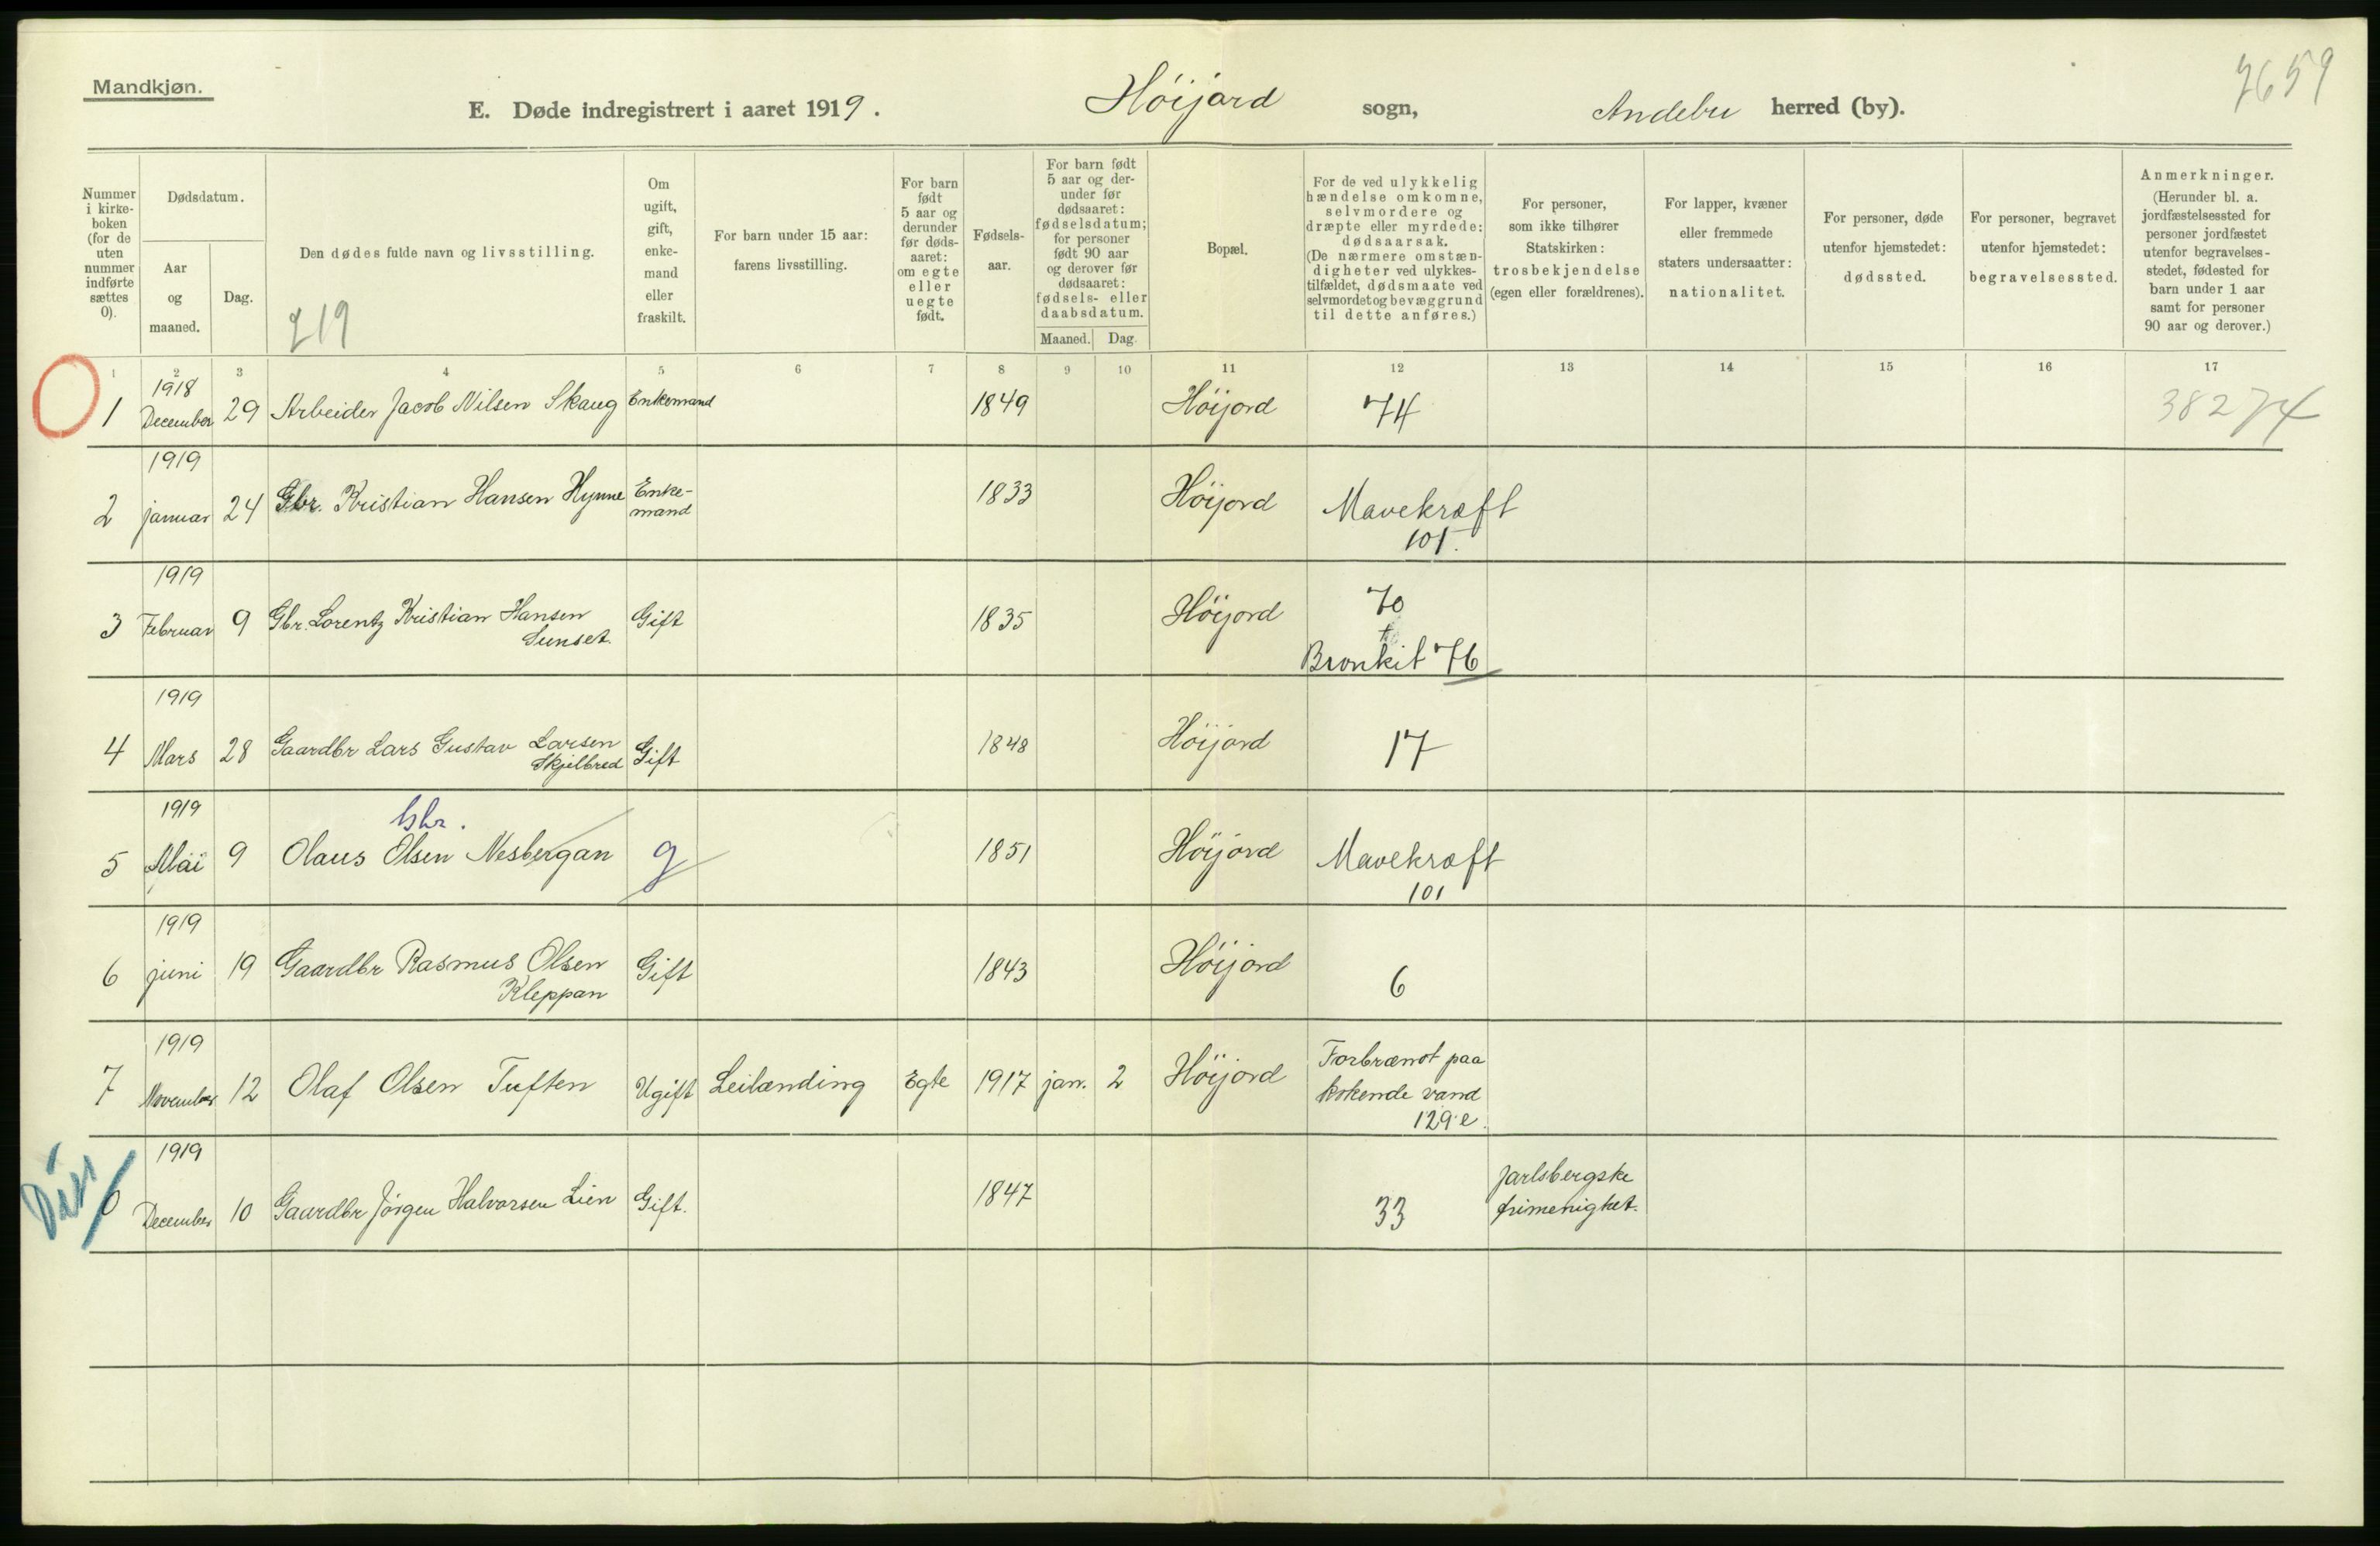 Mandkjøn.
E. Døde indregistrert i aaret 1919. Höijord sogn, Andebu herred (by).
7659
Nummer i kirke-boken (for de uten nummer indførte sættes 0).
Dødsdatum.
Aar og maaned.
Dag.
Den dødes fulde navn og livsstilling.
219
Om ugift, gift, enke-mand eller fraskilt.
For barn under 15 aar: farens livsstilling.
For barn født 5 aar og derunder før døds-aaret: om egte eller uegte født.
Fødsels-aar.
For barn født 5 aar og der-under før dødsaaret: fødselsdatum; for personer født 90 aar og derover før dødsaaret: fødsels- eller daabsdatum.
Maaned. Dag.
Bopæl.
For de ved ulykkelig hændelse omkomne, selvmordere og dræpte eller myrdede: dødsaarsak. (De nærmere omstæn-digheter ved ulykkes-tilfældet, dødsmaate ved selvmordet og bevæggrund til dette anføres.)
For personer, som ikke tilhører Statskirken: trosbekjendelse (egen eller forældrenes).
For lapper, kvæner eller fremmede staters undersaatter: nationalitet.
For personer, døde utenfor hjemstedet: dødssted.
For personer, begravet utenfor hjemstedet: begravelsessted.
Anmerkninger. (Herunder bl. a. jordfæstelsessted for personer jordfæstet utenfor begravelses-stedet, fødested for barn under 1 aar samt for personer 90 aar og derover.)
1 2 3 4 5 6 7 8 9 10 11 12 13 14 15 16 17
1918
1 December 29 Arbeider Jacob Nilsen Skaug Enkemand 1849 Höijord 74 38274
1919
2 januar 24 Gbr. Kristian Hansen Hynne Enke-mand 1833 Höijord Mavekræft
101.
1919
3 Februar 9 Gbr. Lorentz Kristian Hansen Gift 1835 Höijord 70
Sunset. +
Bronkit 76
1919
4 Mars 28 Gaardbr Lars Gustav Larsen Gift 1848 Höijord 17
Skjelbred
1919
5 Mai 9 Olaus Olsen Nesbergan g 1851 Höijord Mavekræft
101
1919
6 juni 19 Gaardbr Rasmus Olsen Gift 1843 Höijord 6
Kleppan
1919
7 November 12 Olaf Olsen Tuften Ugift Leilænding Egte 1917 jan. 2 Höijord Forbrændt paa
kokende vand
129 e.
1919
0 December 10 Gaardbr Jörgen Halvorsen Lien Gift. 1847 33 Jarlsbergske
frimenighet.